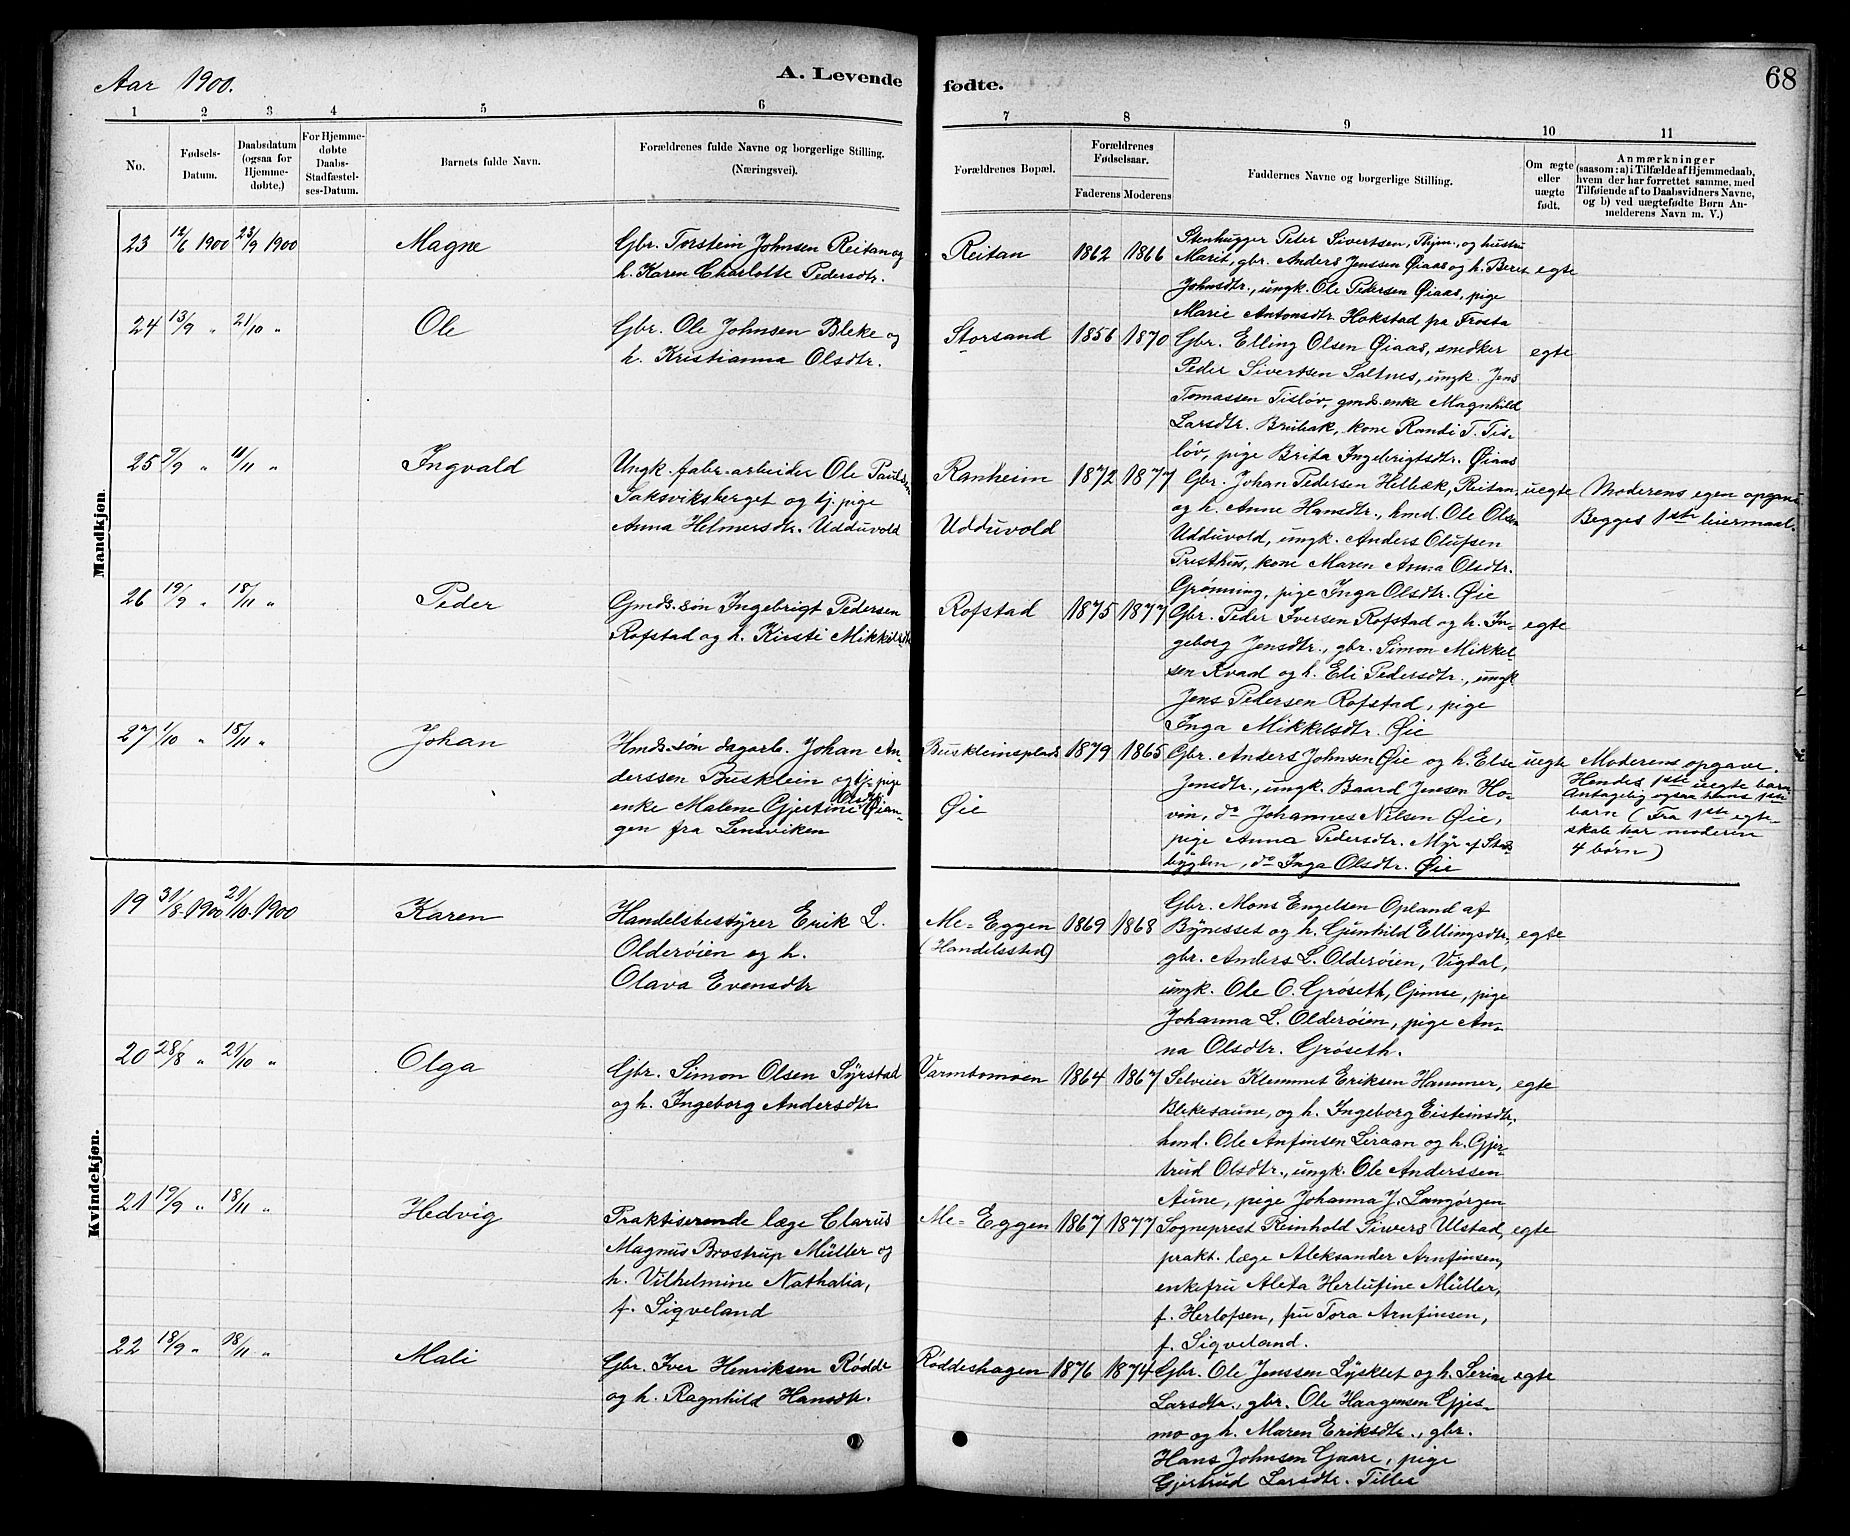 Aar 1900.
A. Levende
fødte.
68
1 2 3 4 5 6 7 8 9 10 11
No.
Fødsels-
Datum.
Daabsdatum
(ogsaa for
Hjemme-
døbte,)
For Hjemme-
døbte
Daabs-
Stadfæstel-
ses-Datum.
Barnets fulde Navn.
Forældrenes fulde Navne og borgerlige Stilling.
(Næringsvei).
Forældrenes Bopæl.
Forældrenes
Fødselsaar.
Faderens Moderens
Faddernes Navne og borgerlige Stilling.
Om ægte
eller
uægte
født.
Anmærkninger
(saasom: a) i Tilfælde af Hjemmedaab,
hvem der har forrettet samme, med
Tilføiende af to Daabsvidners Navne,
og b) ved uægtefødte Børn An-
melderens Navn m. V.)
Mandkjøn
23 12/6 1900 23/9 1900 Magne
Gbr. Torstein Johnsen Reitan og
h. Karen Charlotte Pedersdtr.
Reitan 1862 1866
Stenhugger Peter Sivertsen, Thjem., og hustru
Marit, gbr. Anders Jenssen Øiaas og h. Beret
Johnsdtr., ungk. Ole Pedersen Øiaas, pige
Marie Antonsdtr. Hokstad fra Frosta
egte
24 13/9 " 21/10 " Ole
Gbr. Ole Johnsen Bleke og
h. Kristianna Olsdtr.
Storsand 1856 1870
Gbr. Elling Olsen Øiaas, snedker
Peder Sivertsen Saltnes, ungk. Jens
Tomassen Tisløv, gmds.enke Magnhild
Larsdtr. Brubak, kone Randi T. Tis-
løv, pige Brita Ingebrigtsdtr. Øiaas
egte
25 9/9 " 11/11 " Ingvald
Ungk. fabr.arbeider Ole Paulsen
Saksviksberget og tj.pige
Anna Helmersdtr. Udduvold
Ranheim 1872 1877
Udduvold
Gbr. Johan Pedersen Helbæk, Reitan,
og h. Anne Hansdtr., hmd. Ole Olsen
Udduvold, ungk. Anders Olufsen
Presthus, kone Maren Anna Olsdtr.
Grønning, pige Inga Olsdtr. Øie
uegte
Moderens egen opgave
Begges 1ste leiermaal.
26 19/9 " 18/11 " Peder
Gmds.søn Ingebrigt Pedersen
Rofstad og h. Kirsti Mikkelsdtr
Rofstad 1875 1877
Gbr. Peder Iversen Rofstad og h. In-
geborg Jensdtr., gbr. Simon Mikkel-
sen Kvaal og h. Eli Pedersdtr., ungk.
Jens Pedersen Rofstad, pige
Inga Mikkelsdtr. Øie
egte
27 1/10 " 18/11 " Johan
Hmds.søn dagarb. Johan An-
derssen Busklein og tj. pige
enke Malene Gjertine Olsdtr. Øian-
gen fra Lensviken
Buskleinsplads 1879 1865
Øie
Gbr. Anders Johnsen Øie og h. Else
Jensdtr., ungk. Baard Jensen Ho-
vin, do Johannes Nilsen Øie,
pige Anna Pedersdtr. Myr af Stads-
bygden, do Inga Olsdtr. Øie
uegte
Moderens opgave.
Hendes 1ste uegte barn.
Antagelig ogsaa hans 1ste
barn (Fra 1ste egte-
skab har moderen
4 børn)
Kvindekjøn.
19 31/8 1900 21/10 1900 Karen
Handelsbestyrer Erik L.
Olderøien og h.
Olava Evensdtr
Me=Eggen 1869 1868
(Handelssted)
Gbr. Mons Engelsen Opland af
Bynesset og h. Gunhild Ellingsdtr.,
gbr. Anders L. Olderøien, Vigdal,
ungk. Ole O. Grøseth, Gimse, pige
Johanna L. Olderøien, pige An-
na Olsdtr. Grøseth.
egte
20 28/8 " 21/10 " Olga
Gbr. Simon Olsen Syrstad
og h. Ingeborg Andersdtr
Varmbomoen 1864 1867
Selveier Klemmet Eriksen Hammer,
Blekesaune, og h. Ingeborg Eisteinsdtr,
hmd. Ole Anfinsen Leraan og h. Gjer-
trud Olsdtr., ungk. Ole Anderssen
Aune, pige Johanna J. Langørgen
egte
21 19/9 " 18/11 " Hedvig
Praktiserende læge Clarus
Magnus Brostrup Müller og
h. Vilhelmine Nathalia,
f. Siqveland
Me=Eggen 1867 1877
Sogneprest Reinhold Siwers Ulstad,
prakt. læge Aleksander Arnfinsen,
enkefru Aleta Herlufine Müller,
f. Herlofsen, fru Tora Arnfinsen,
f. Siqveland.
egte
22 18/9 " 18/11 " Mali
Gbr. Iver Henriksen Rødde
og h. Ragnhild Hansdtr.
Røddeshagen 1876 1874
Gbr. Ole Jenssen Lysklet og h. Serine
Larsdtr., gbr. Ole Haagensen Gjes-
mo og h. Maren Eriksdtr., gbr.
Hans Johnsen Gaare, pige
Gjertrud Larsdtr. Tiller
egte